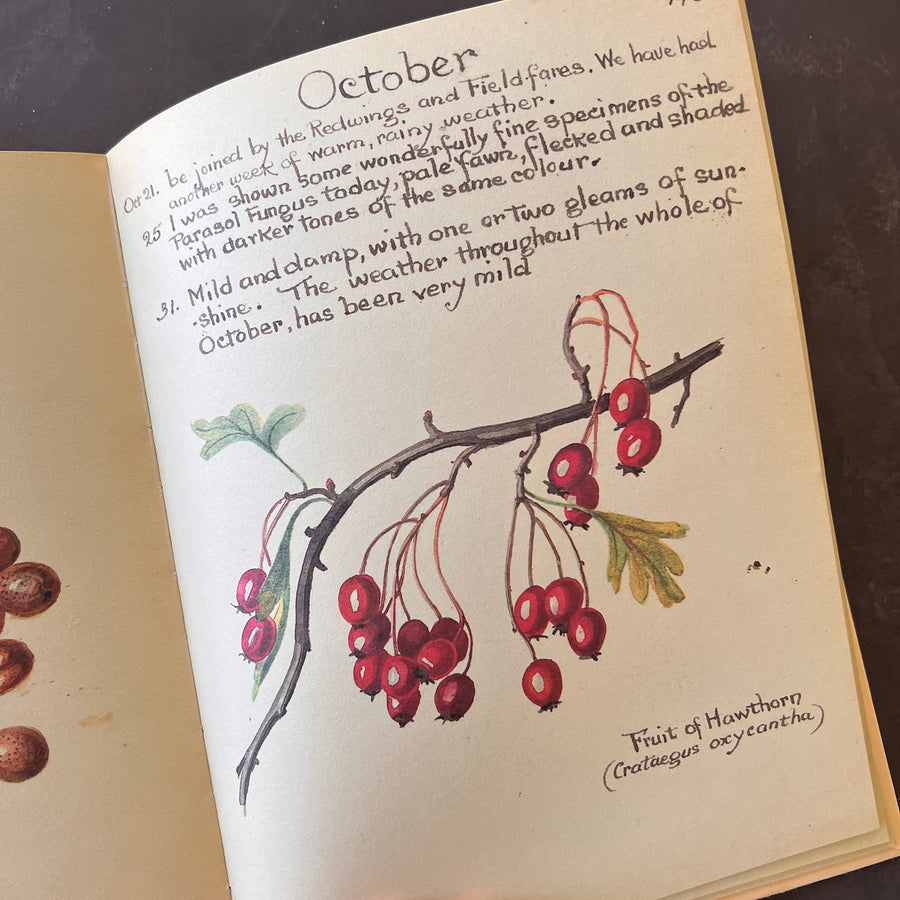 October
be joined by the Redwings and Fieldfares. We have had
Oct 21. another week of warm, rainy weather.
25 I was shown some wonderfully fine specimens of the
Parasol Fungus today, pale fawn, flecked and shaded
with darker tones of the same colour.
31. Mild and damp, with one or two gleams of sun-
-shine. The weather throughout the whole of
October, has been very mild
Fruit of Hawthorn
(Crataegus oxycantha)